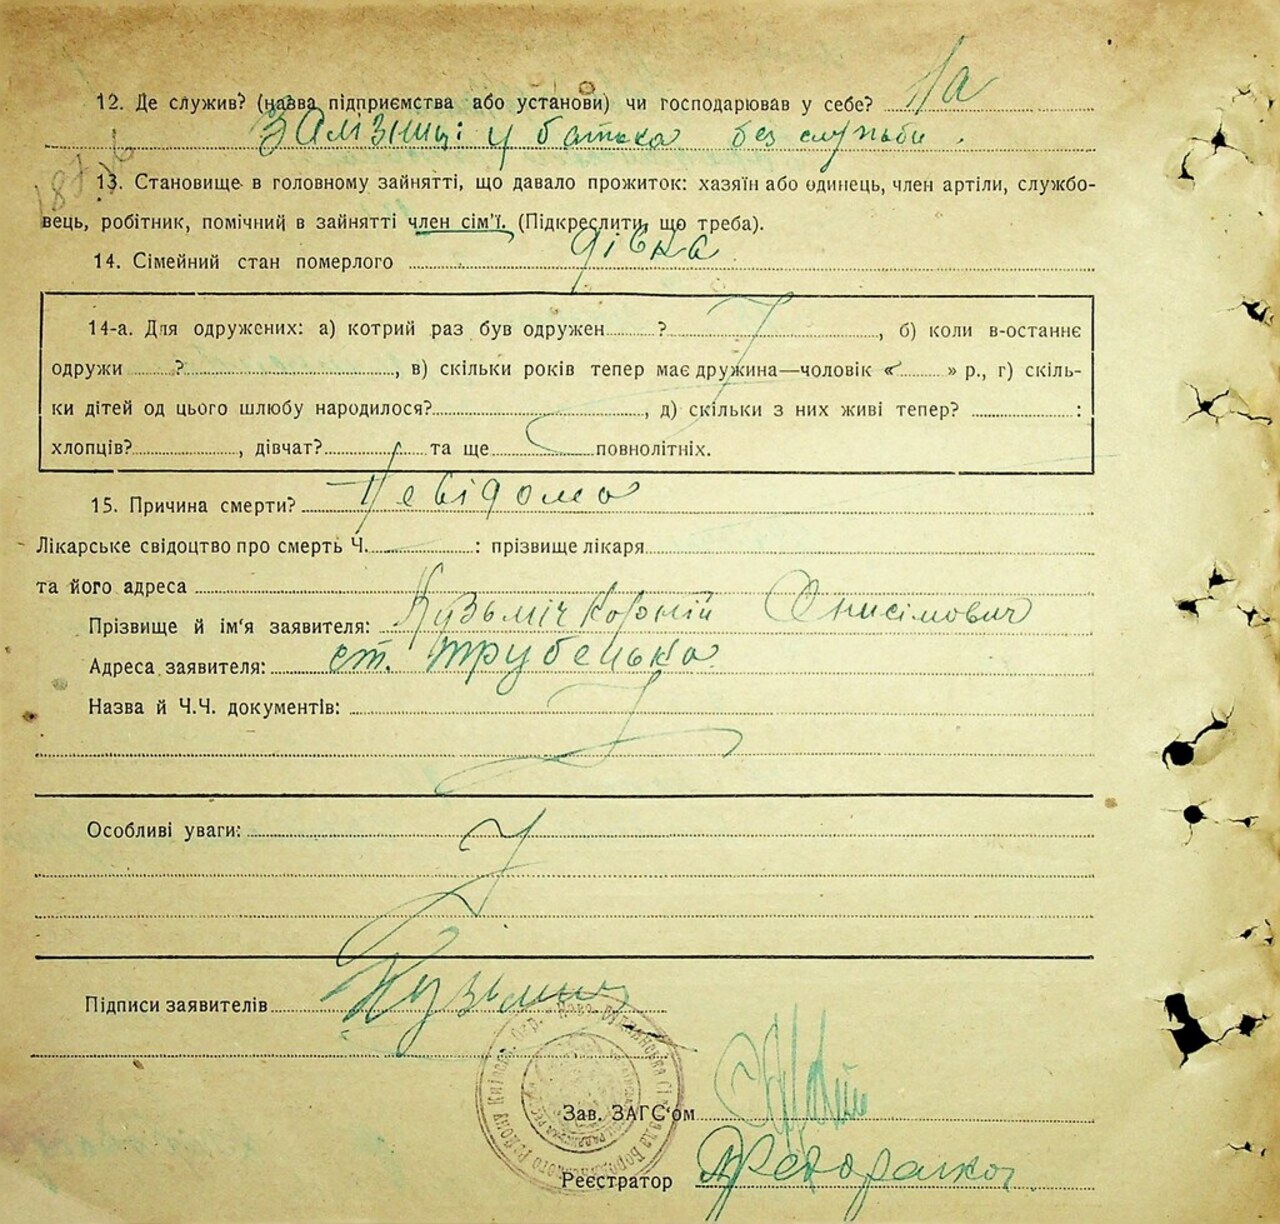 12. Де служив? (назва підприємства або установи) чи господарював у себе? На
Залізниці у батька без служби.
13. Становище в головному зайнятті, що давало прожиток: хазяїн або одинець, член артіли, службо-
вець, робітник, помічний в зайнятті член сім'ї. (Підкреслити, що треба).
14. Сімейний стан померлого дівка
14-а. Для одружених: а) котрий раз був одружен ? , б) коли в-останнє
одружи ? , в) скільки років тепер має дружина—чоловік « » р., г) скіль-
ки дітей од цього шлюбу народилося? , д) скільки з них живі тепер? :
хлопців? , дівчат? та ще повнолітніх.
15. Причина смерти? Невідома
Лікарське свідоцтво про смерть Ч. : прізвище лікаря
та його адреса
Прізвище й ім'я заявителя: Кузьміч Корній Онисімович
Адреса заявителя: ст. Трубецька
Назва й Ч.Ч. документів:
Особливі уваги:
Підписи заявителів Кузьмич
Зав. ЗАГС'ом
Реєстратор